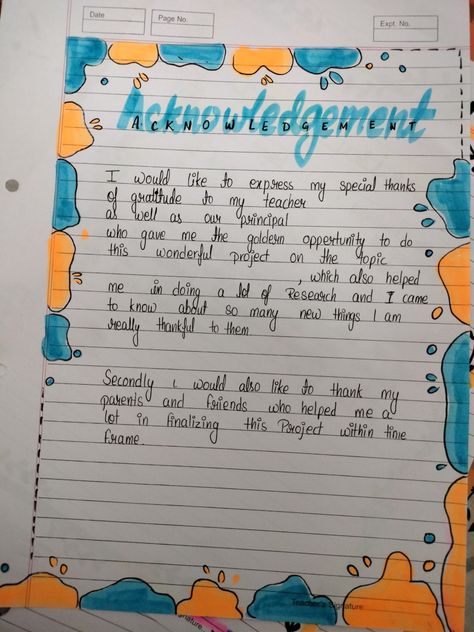 Date
Page No.
Expt. No.
Acknowledgement
ACKNOWLEDGEMENT
I would like to express my special thanks
of gratitude to my teacher
as well as our principal
who gave me the goldern opportunity to do
this wonderful project on the topic
, which also helped
me in doing a lot of Research and I came
to know about so many new things I am
really thankful to them
Secondly i would also like to thank my
parents and friends who helped me a
lot in finalizing this Project within time
frame.
Teacher's Signature:
nature